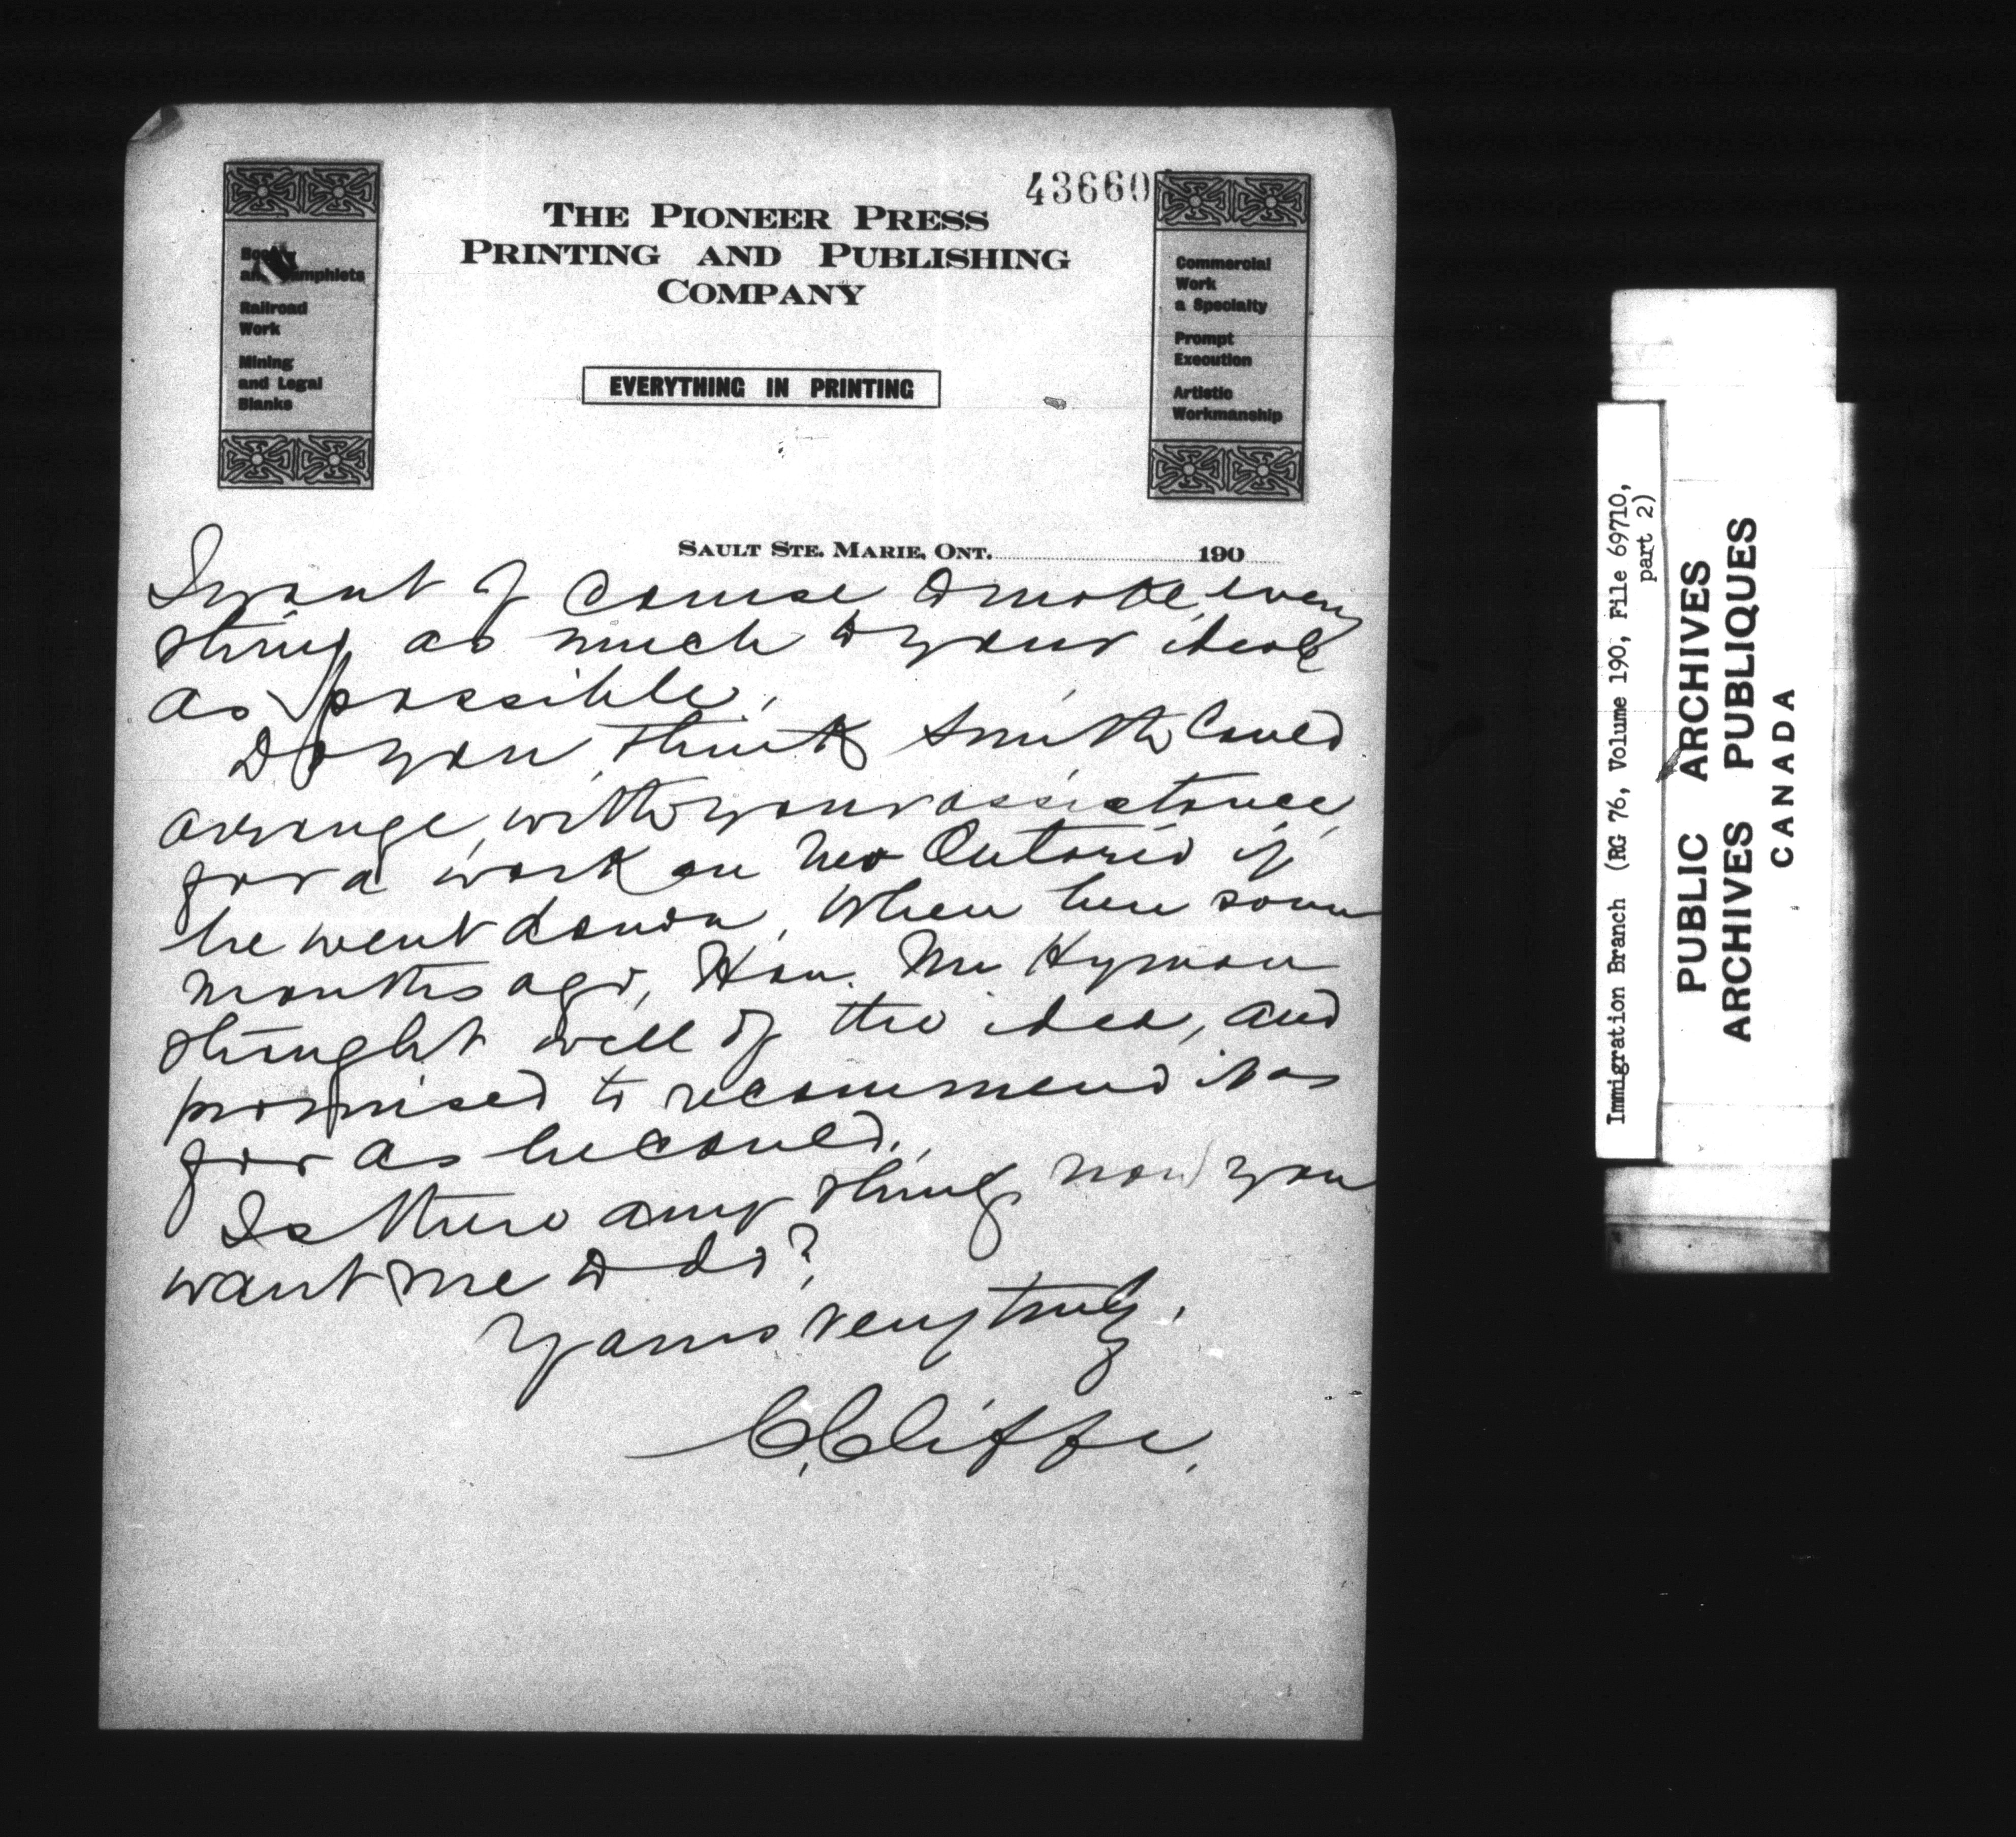 436607
THE PIONEER PRESS
PRINTING AND PUBLISHING
COMPANY
EVERYTHING IN PRINTING
Books
and Pamphlets
Railroad
Work
Mining
and Legal
Blanks
Commercial
Work
a Specialty
Prompt
Execution
Artistic
Workmanship
SAULT STE. MARIE, ONT. 190
I want of course to make every
thing as much to your ideal
as possible.
Do you think Smith could
arrange, with your assistance,
for a work on New Ontario if
he went down. When here some
months ago, Hon. Mr Hyman
thought well of the idea, and
promised to recommend it as
far as he could.
Is there any thing now you
want me to do?
Yours very truly,
C. Cliffe.
Immigration Branch (RG 76, Volume 190, File 69710,
part 2)
PUBLIC ARCHIVES
ARCHIVES PUBLIQUES
CANADA